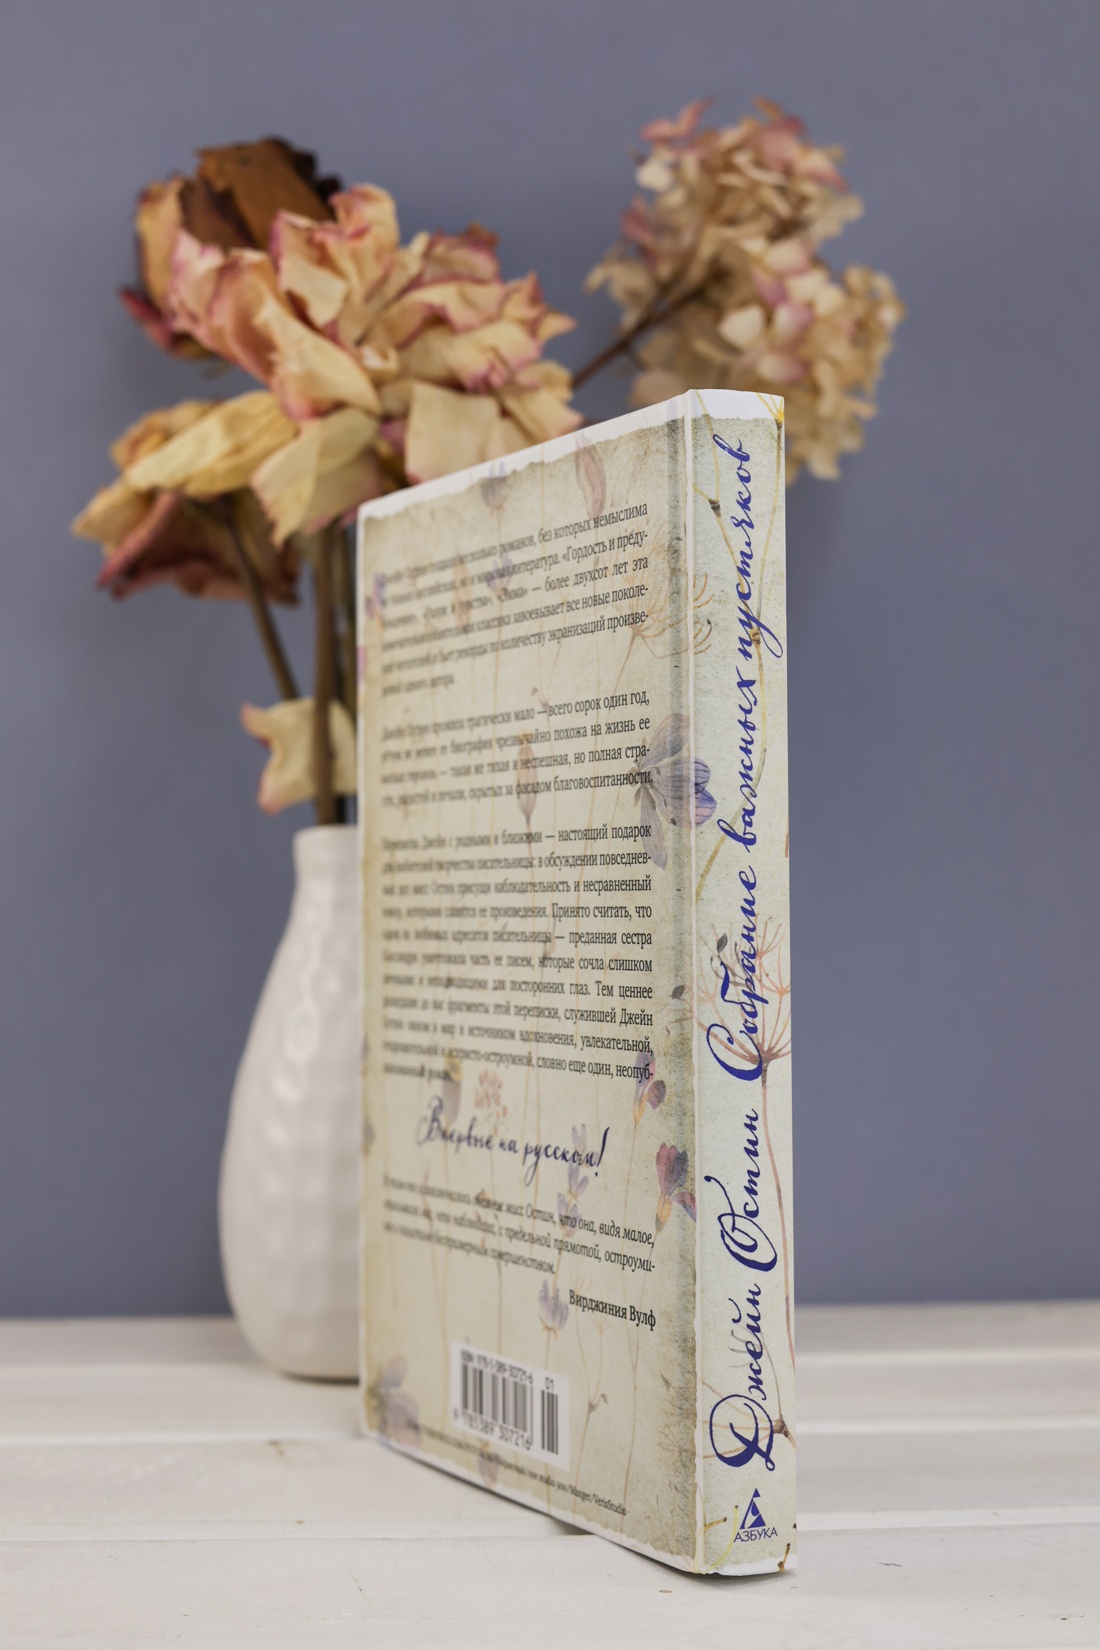 несколько романов, без которых немыслима
литература. «Гордость и преду-
«Эмма» — более двухсот лет эта
классика завоевывает все новые поколе-
и бьет рекорды по количеству экранизаций произве-
одного автора.
прожила трагически мало — всего сорок один год,
ее биография чрезвычайно похожа на жизнь ее
— такая же тихая и неспешная, но полная стра-
радостей и печали, скрытых за фасадом благовоспитанности.
Переписка Джейн с родными и близкими — настоящий подарок
для любителей творчества писательницы: в обсуждении повседнев-
мисс Остин присущи наблюдательность и несравненный
юмор, которыми славятся ее произведения. Принято считать, что
один из любимых адресатов писательницы — преданная сестра
Кассандра уничтожила часть ее писем, которые сочла слишком
личными и неподходящими для посторонних глаз. Тем ценнее
дошедшие до нас фрагменты этой переписки, служившей Джейн
Остин окном в мир и источником вдохновения, увлекательной,
откровенной и искристо-остроумной, словно еще один, неопуб-
ликованный роман.
Впервые на русском!
мисс Остин, что она, видя малое,
что наблюдала, с предельной прямотой, остроуми-
беспримерным совершенством.
Вирджиния Вулф
ISBN 978-5-389-30721-6 01
9 785389 307216
/Manger/VerisStudio
Джейн Остин Собрание важных пустяков
АЗБУКА